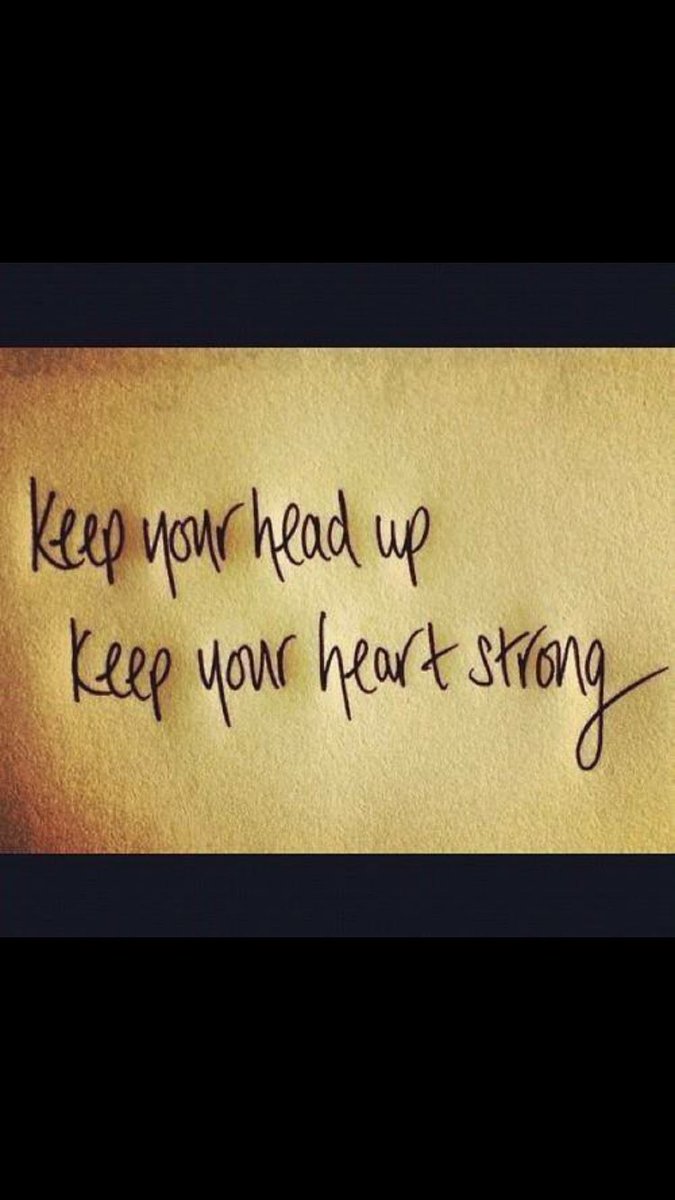 Keep your head up
Keep your heart strong